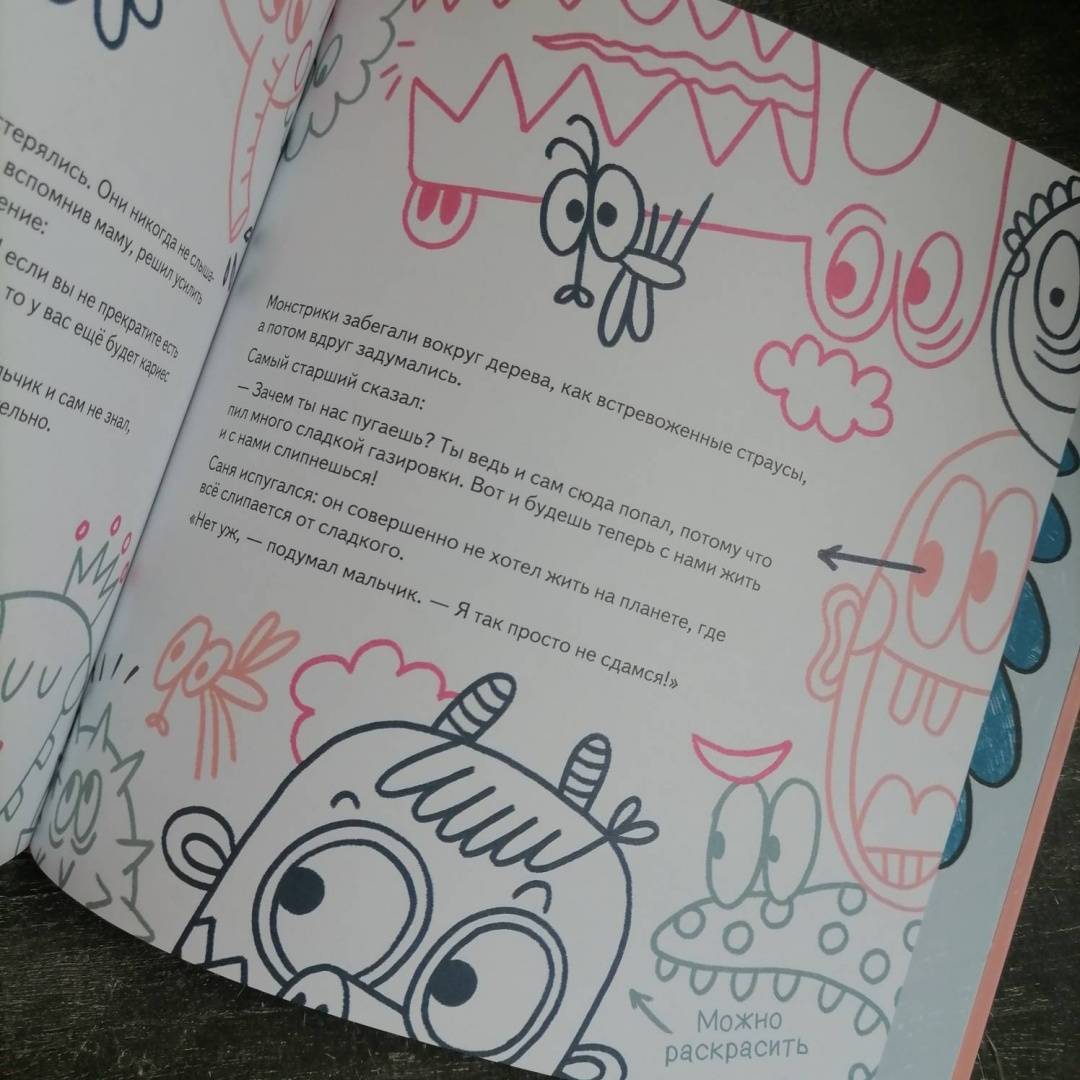 стерялись. Они никогда не слыша-
вспомнив маму, решил усилить
ение:
если вы не прекратите есть
то у вас ещё будет кариес
льчик и сам не знал,
ельно.
Монстрики забегали вокруг дерева, как встревоженные страусы,
а потом вдруг задумались.
Самый старший сказал:
— Зачем ты нас пугаешь? Ты ведь и сам сюда попал, потому что
пил много сладкой газировки. Вот и будешь теперь с нами жить
и с нами слипнешься!
Саня испугался: он совершенно не хотел жить на планете, где
всё слипается от сладкого.
«Нет уж, — подумал мальчик. — Я так просто не сдамся!»
Можно
раскрасить